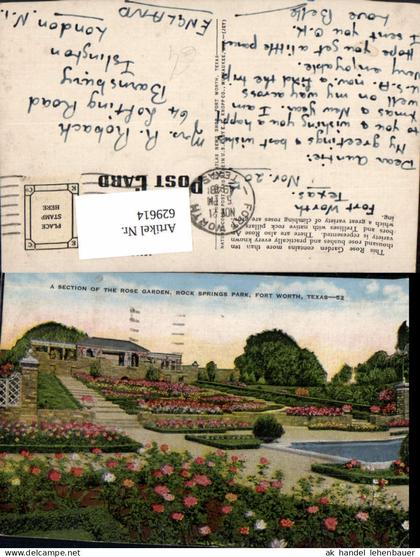 Rose Garden contains more than ten
thousand rose bushes and practically every known
variety is represented. There are also Rose Ar-
bors and Trellises with native rock pillars on
which a great variety of climbing roses
Fort Worth
Texas
Nov. 20
Dear Auntie:
My greetings & best wishes
to you & wishing you a happy
Xmas & New year. I am
well on my way across
U.S.A. now & find the trip
very enjoyable.
Hope you got a little parcel
I sent you O.K.
Love Belle
POST CARD
PLACE
STAMP
HERE
FORT WORTH
NOV 21
5 PM
TEXAS
Mrs. R. Robach
64 Lofting Road
Barnsbury
Islington
London N. 1
ENGLAND
Artikel Nr.
629614
A SECTION OF THE ROSE GARDEN, ROCK SPRINGS PARK, FORT WORTH, TEXAS—52
© ak handel lehenbauer